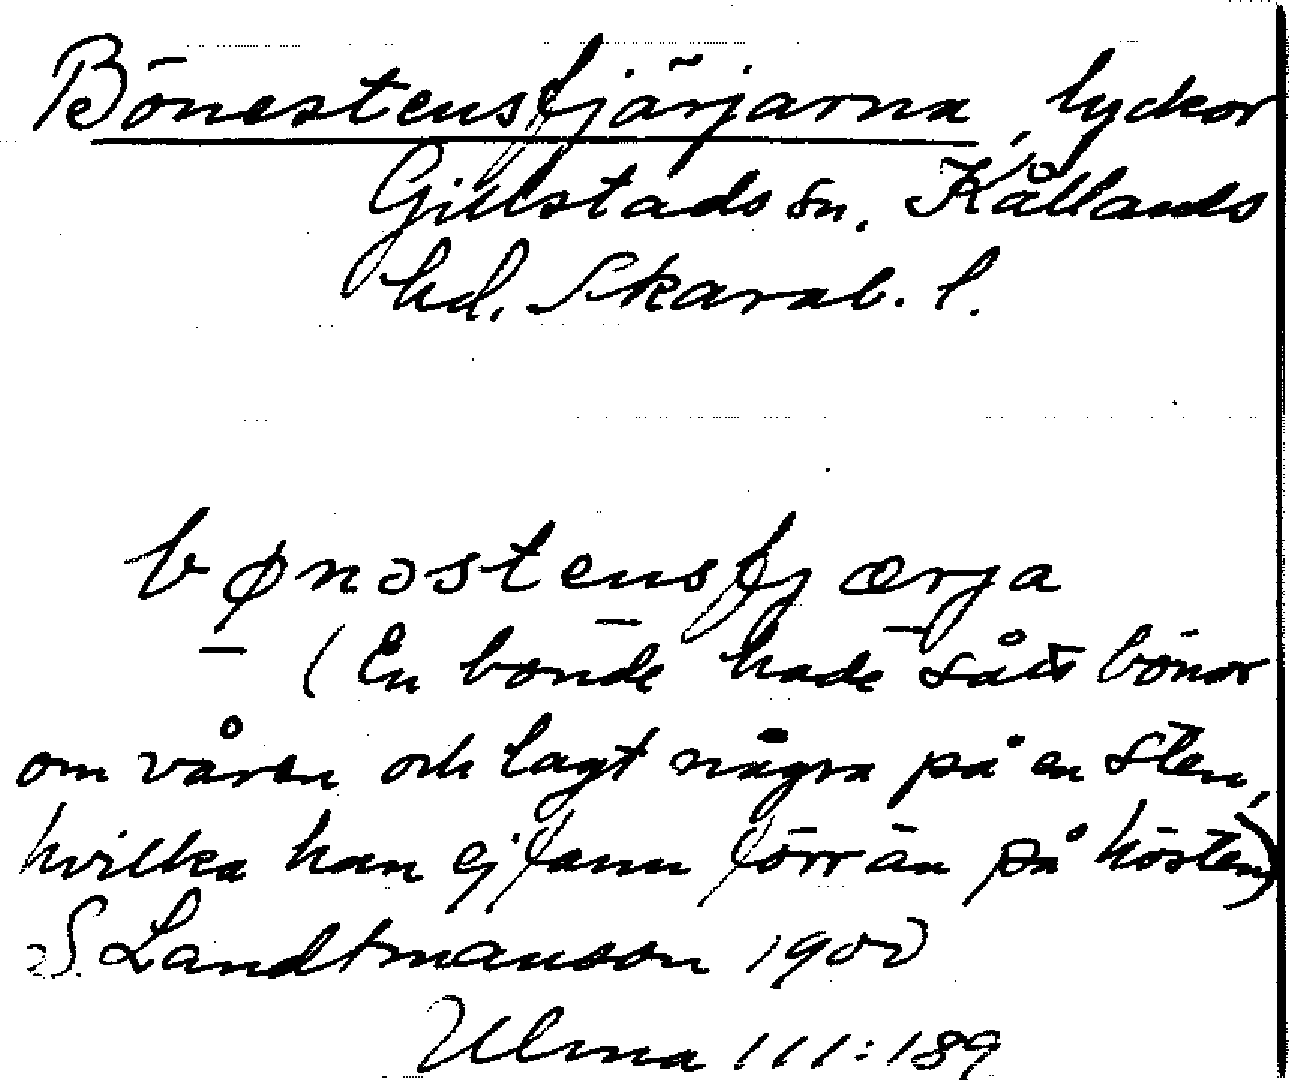 Bönestensfjärjarna, lyckor
Gillstads sn. Kållands
hd. Skarab. l.
bønəstensfjærja
(En bonde hade sått bönor
om våren och lagt några på en sten,
hvilka han ej fann förrän på hösten)
S Landtmanson 1900
Ulma 111:189